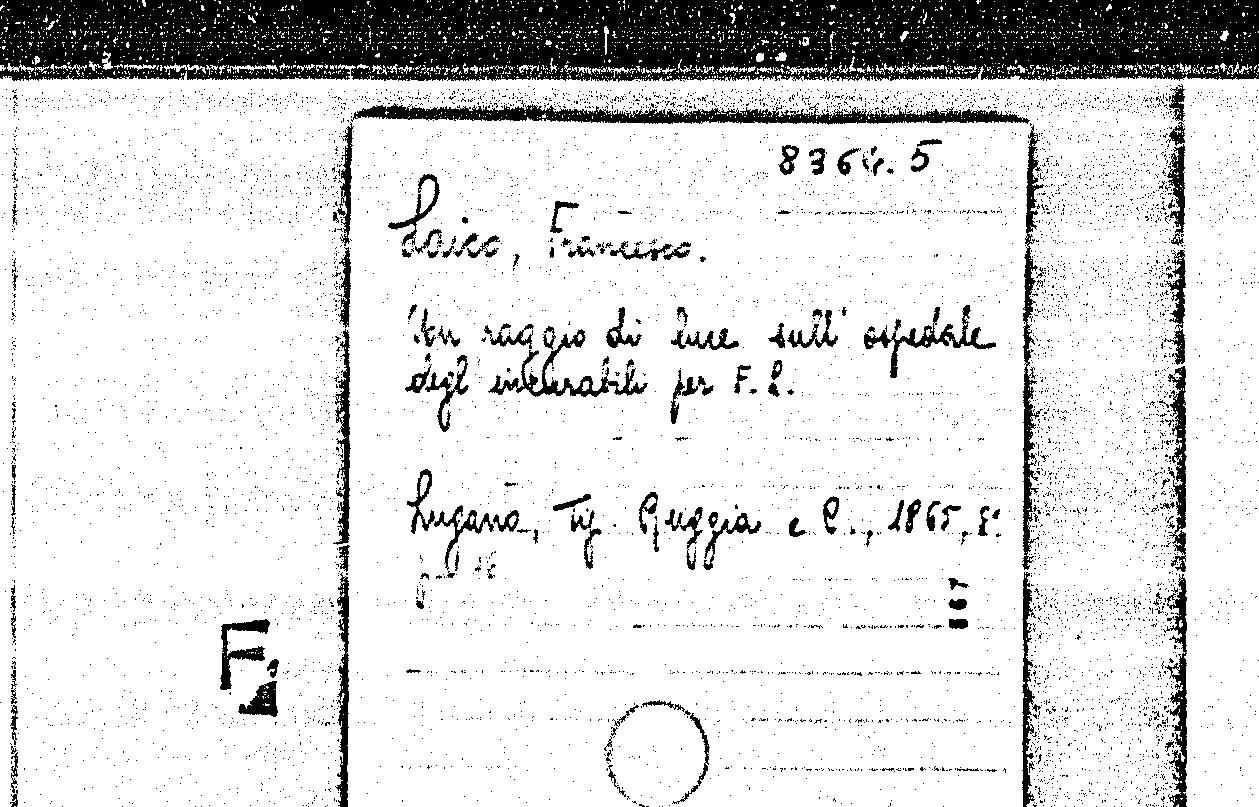 8364.5
Laico, Francesco.
Un raggio di luce sull' ospedale
degl' incurabili per F. L.
Lugano, Tip. Ruggia e C., 1865, 8°.
p. 16
867